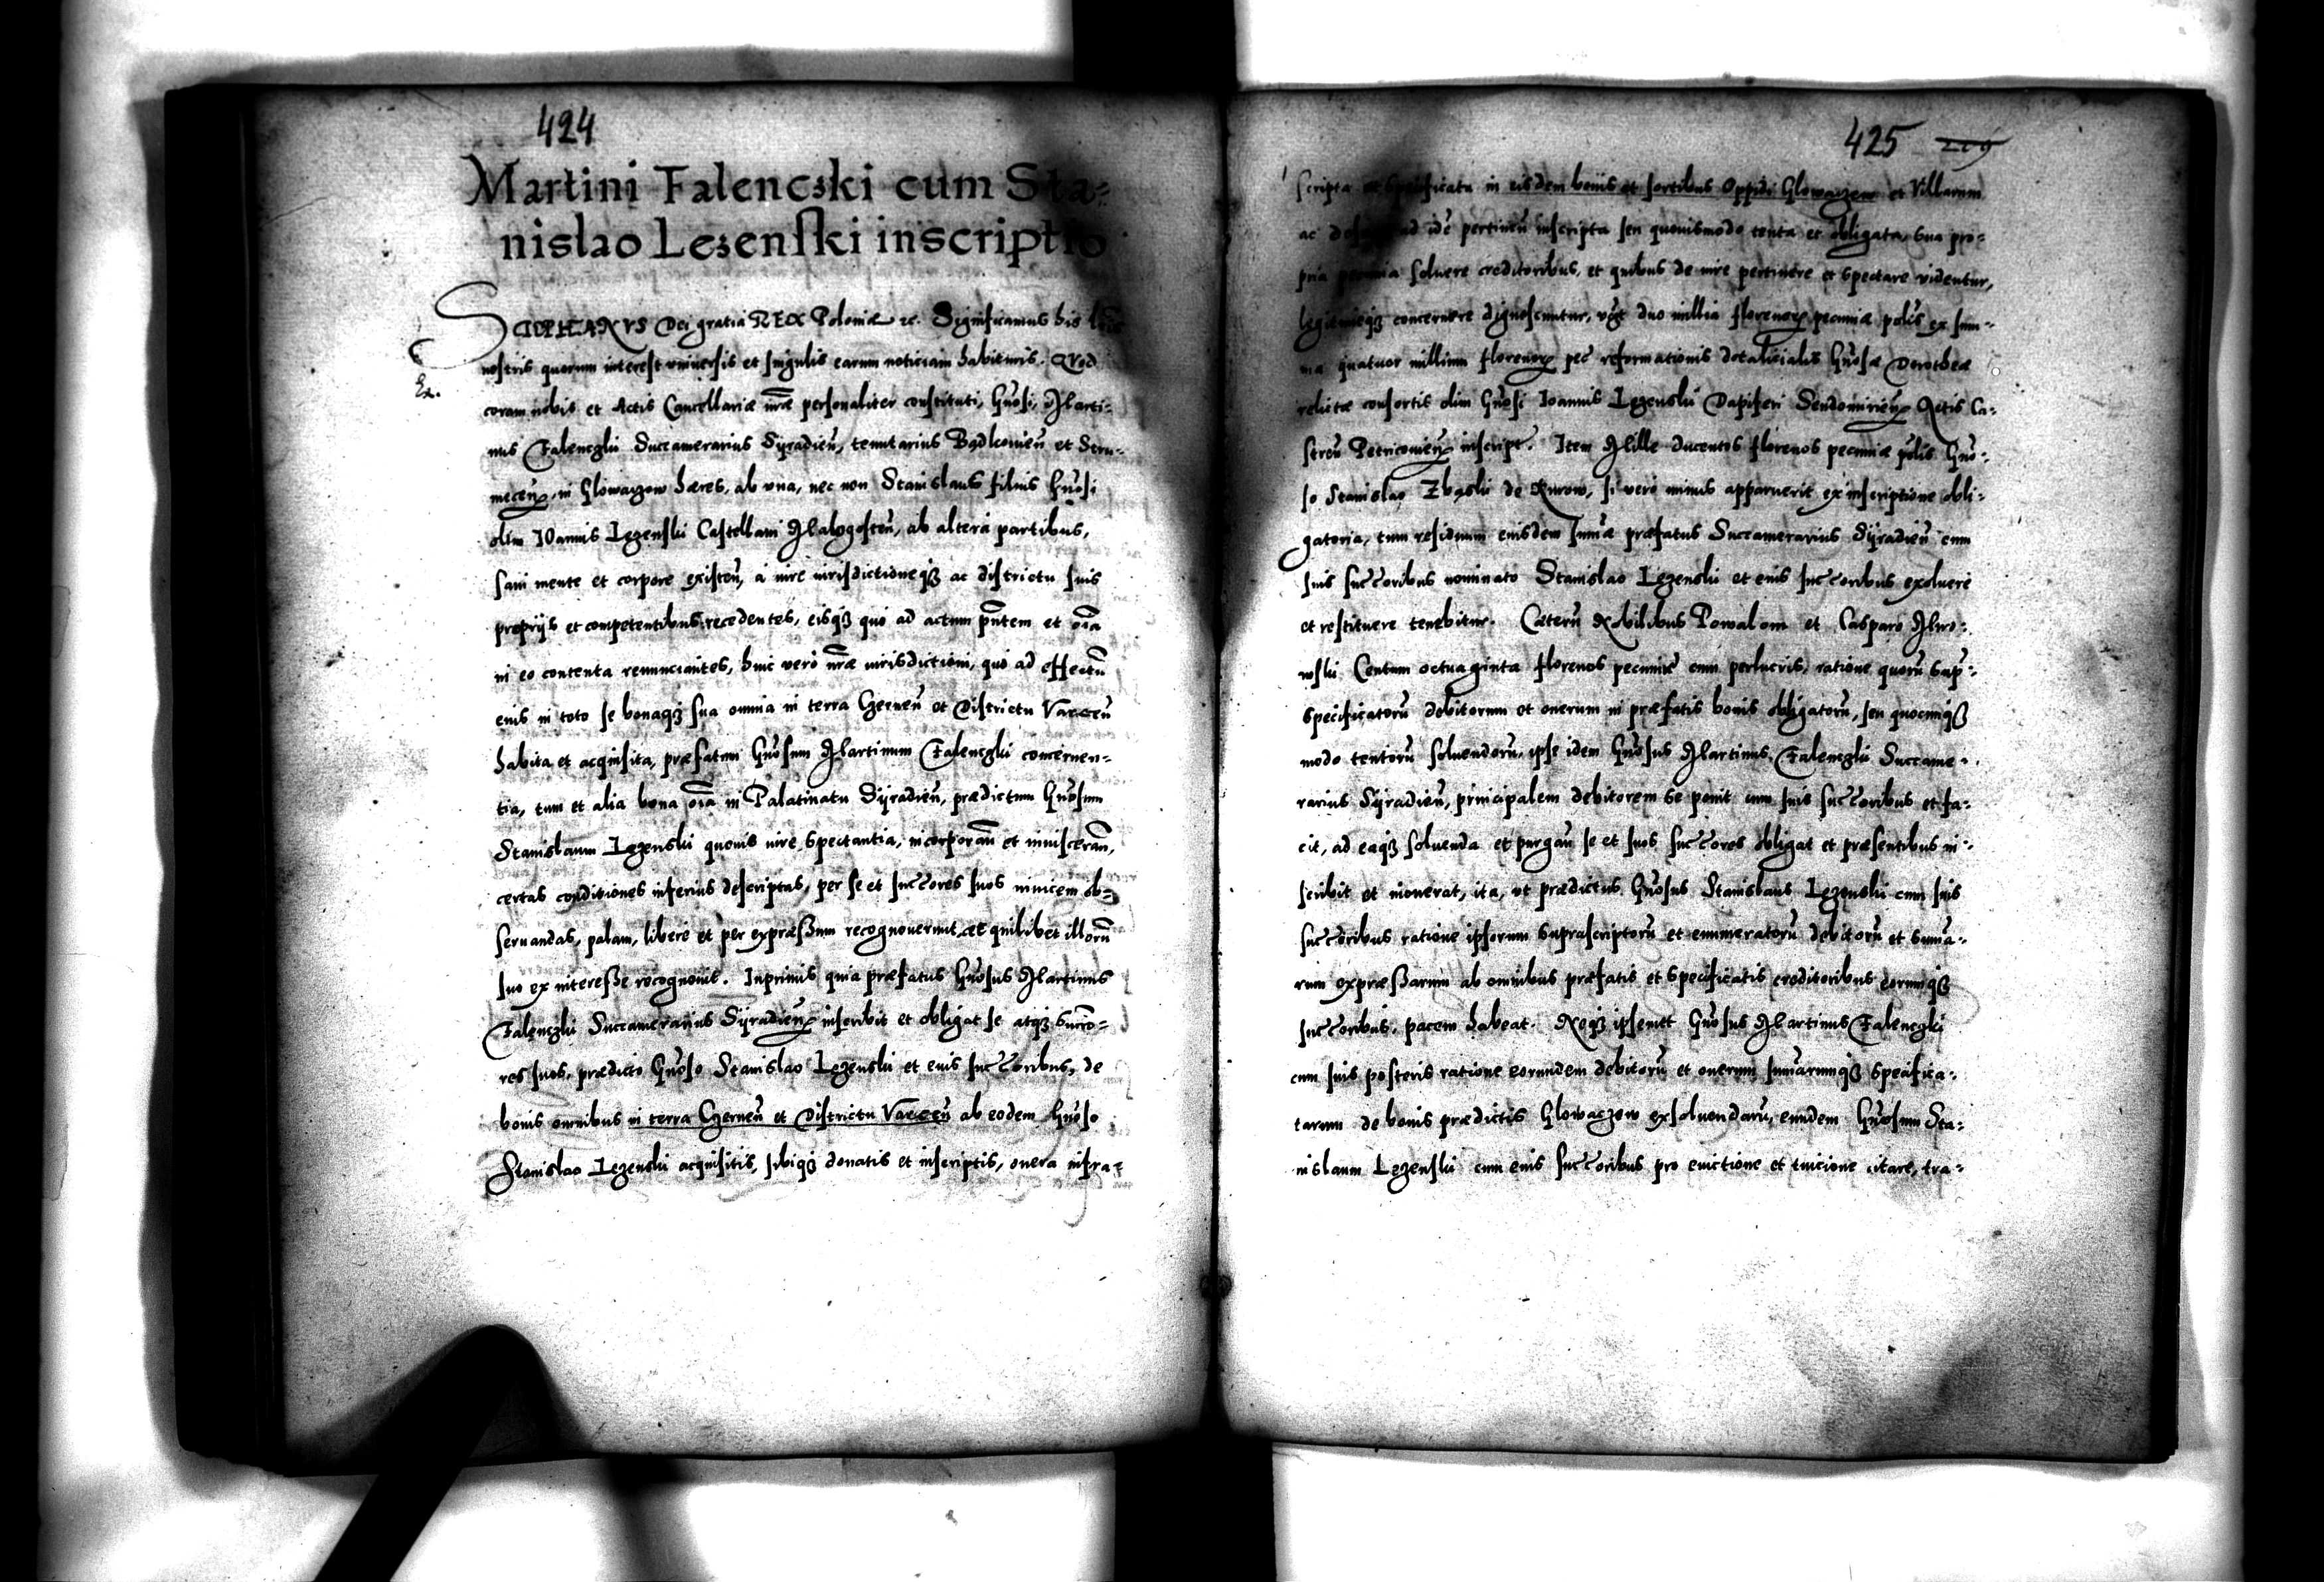 424
Martini Falencski cum Sta-
nislao Lezenski inscriptio
STEPHANVS Dei gratia REX Poloniæ &c. Significamus his lr̃is
nostris quorum interest vniuersis et singulis earum noticiam habituris. Quod
Ex.
coram nobis et Actis Cancellariæ nr̃æ personaliter constituti, Gn̄osi, Marti-
nus Falenczki Succamerarius Syradień, tenutarius Bądkouień et Stru-
mecen̄, in Glowaczow hæres, ab vna, nec non Stanislaus filius Gn̄osi
olim IOannis Lezenski Castellani Malogosteń, ab altera partibus,
sani mente et corpore existeń, à iure iurisdictioneqꝫ ac districtu suis
proprijs et competentibus recedentes, eisqꝫ quò ad actum pn̄tem et oĩa
in eo contenta renunciantes, huic verò nr̃æ iurisdictioni, quò ad effectũ
eius in toto se bonaqꝫ sua omnia in terra Czerneń et Districtu Varecen̄
habita et acquisita, præfatum Gn̄osum Martinum Falenczki concernen-
tia, tum et alia bona oĩa in Palatinatu Syradień, prædictum Gn̄osum
Stanislaum Lezenski quouis iure spectantia, incorporań et inuisceran̄,
certas conditiones inferius descriptas, per se et succ̄ores suos inuicem ob-
seruandas, palam, liberè et per expræßum recognouerunt, et quilibet illorũ
suo ex intereße recognouit. Inprimis quia præfatus Gn̄osus Martinus
Falenczki Succamerarius Syradień inscribit et obligat se atqꝫ succo-
res suos, prædicto Gn̄oso Stanislao Lezenski et eius succ̄oribus, de
bonis omnibus in terra Czerneń et Districtu Varecen̄ ab eodem Gn̄oso
Stanislao Lezenski acquisitis, sibiqꝫ donatis et inscriptis, onera infra-
425 219
scripta et specificata in eisdem bonis et sortibus Oppidi Glowaczew et Villarum
ac ad idẽ pertineń inscripta seu quouismodo tenta et obligata sua pro-
pria pecunia soluere creditoribus, et quibus de iure pertinere et spectare videntur,
legitimeqꝫ concernere dignoscuntur, vꝫt duo millia florenorꝫ pecuniæ polis ex sum-
ma quatuor millium florenorꝫ pec̃ reformationis dotalicialis Gn̄osæ Dorotheæ
relictæ consortis olim Gn̄osi Ioannis Lezenski Dapiferi Sendomirień Actis Ca-
streń Petricouień inscript. Item Mille ducentos florenos pecuniæ polis Gn̄o-
so Stanislao Zbąski de Kurow, si verò minus apparuerit ex inscriptione obli-
gatoria, tum residuum eiusdem sum̃æ præfatus Succamerarius Syradień cum
suis succ̄oribus nominato Stanislao Lezenski et eius succ̄oribus exoluere
et restituere tenebitur. Cæterũ Nobilibus Powalom et Casparo Mro-
wski Centum octuaginta florenos pecuniæ cum perlucris, ratione quorũ sup-
specificatorũ debitorum et onerum in præfatis bonis obligatorũ, seu quocunqꝫ
modo tentorũ soluendorũ, ipse idem Gn̄osus Martinus Falenczki Succame-
rarius Syradień, principalem debitorem se ponit cum suis succ̄oribus et fa-
cit, ad eaqꝫ soluenda et purgań se et suos succ̄ores obligat et præsentibus in-
scribit et inouerat, ita, vt prædictus Gn̄osus Stanislaus Lezenski cum suis
succ̄oribus ratione ipsorum suprascriptorũ et enumeratorũ debitorũ et sum̃a-
rum expræßarum ab omnibus præfatis et specificatis creditoribus eorumqꝫ
succ̄oribus, pacem habeat. Neqꝫ ipsemet Gn̄osus Martinus Falenczki
cum suis posteris ratione eorundem debitorũ et onerum sum̃arumqꝫ specifica-
tarum de bonis prædictis Glowaczow exsoluendarũ, eundem Gn̄osum Sta-
nislaum Lezenski cum eius succ̄oribus pro euictione et tuicione citare, tra-